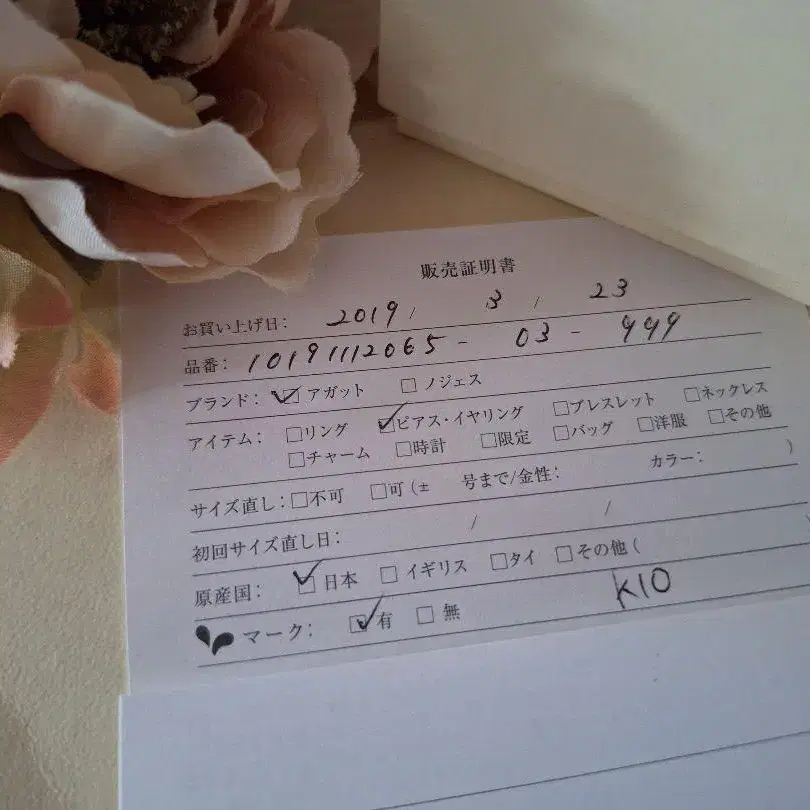 販売証明書
お買い上げ日: 2019 / 3 / 23
品番: 10191112065 - 03 - 999
ブランド: ☑ アガット □ ノジェス
アイテム: □リング ☑ピアス・イヤリング □ブレスレット □ネックレス
□チャーム □時計 □限定 □バッグ □洋服 □その他
サイズ直し: □不可 □可 (± 号まで/金性: カラー: )
初回サイズ直し日: / /
原産国: ☑ 日本 □ イギリス □タイ □その他 (
マーク: ☑有 □ 無 K10